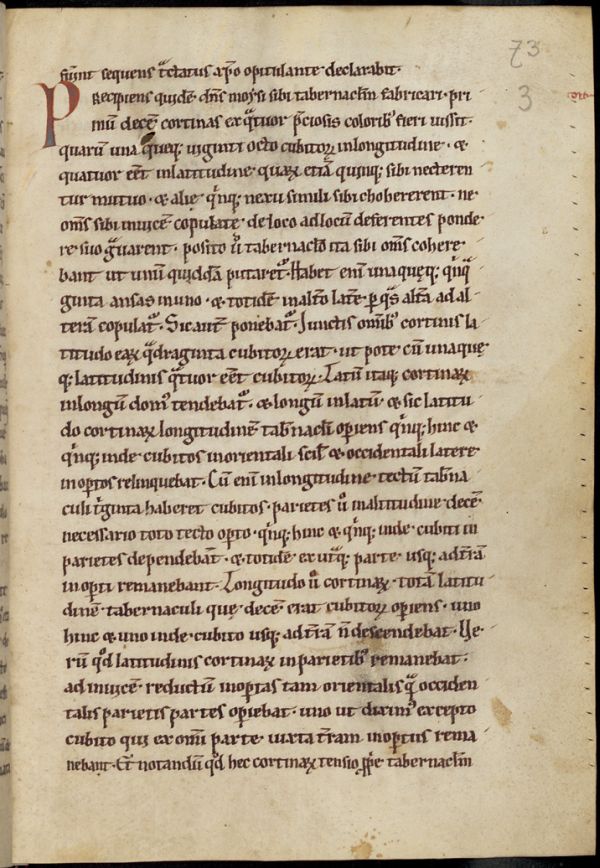 73
3
siunt sequens tͣctatus xp̄o opitulante declarabit.
PRecipiens quidē dn̄s moẏsi sibi tabernaclm̄ fabricari. pri
mū decē cortinas ex qͣtuor p̄ciosis colorib; fieri iussit.
quarū una queq; uiginti octo cubitoꝝ in longitudine. &
quatuor eēt in latitudine quaꝝ etiā quinq; sibi necteren
tur mutuo. & alie qͥnq; nexu simili sibi choherent. ne
om̄s sibi inuicē copulate de loco ad locū deferentes ponde
re suo gͣuarent. posito u̾ tabernaclo ita sibi om̄s cohere
bant ut unū quiddā putaret᷑. Habet eni᷑ una quęq; qͥnqͣ
ginta ansas in uno. & totidē in alto late. ꝑ qͣs alta᷑ ad al
terā copulat᷑. Sic aut̄ ponebat᷑. Iunctis omīb; cortinis la
titudo eaꝝ qͣdraginta cubitoꝝ erat. ut pote cū una quę
q; latitudinis qͣtuor eēt cubitoꝝ. Latū itaq; cortinaꝝ
in longū dom᷒ tendebat᷑. & longū in latū. & sic latitu
do cortinaꝝ longitudinē tab̄nacli opiens qͥnq; hinc &
qͥnq; inde cubitos in orientali scil᷑ & occidentali latere
inoꝑtos relinquebat. Cū eni᷑ in longitudine tectū tab̄na
culi tͥginta haberet cubitos. parietes u̾ in altitudine decē
necessario toto tecto oꝑto. qͥnq; hinc & qͥnq; inde cubiti in
parietes dependebāt. & totidē ex utͣq; parte usq; ad t̄rā
inoꝑti remanebant. Longitudo u̾ cortinaꝝ. totā latitu
dinē tabernaculi quę decē erat cubitoꝝ oꝑiens. uno
hinc & uno inde cubito usq; ad t̄rā n̄ descendebat. Ue
rū qd̾ latitudinis cortinaꝝ in parietib; remanebat.
ad inuicē reductū inoꝑtas tam orientalis qͣ occiden
talis parietis partes oꝑiebat. uno ut dixim᷒ excepto
cubito qui ex om̄i parte iuxta t̄ram inoꝑtus rema
nebant. Et notandū qd̾ hec cortinaꝝ tensio ꝓp̄e tabernaclm̄